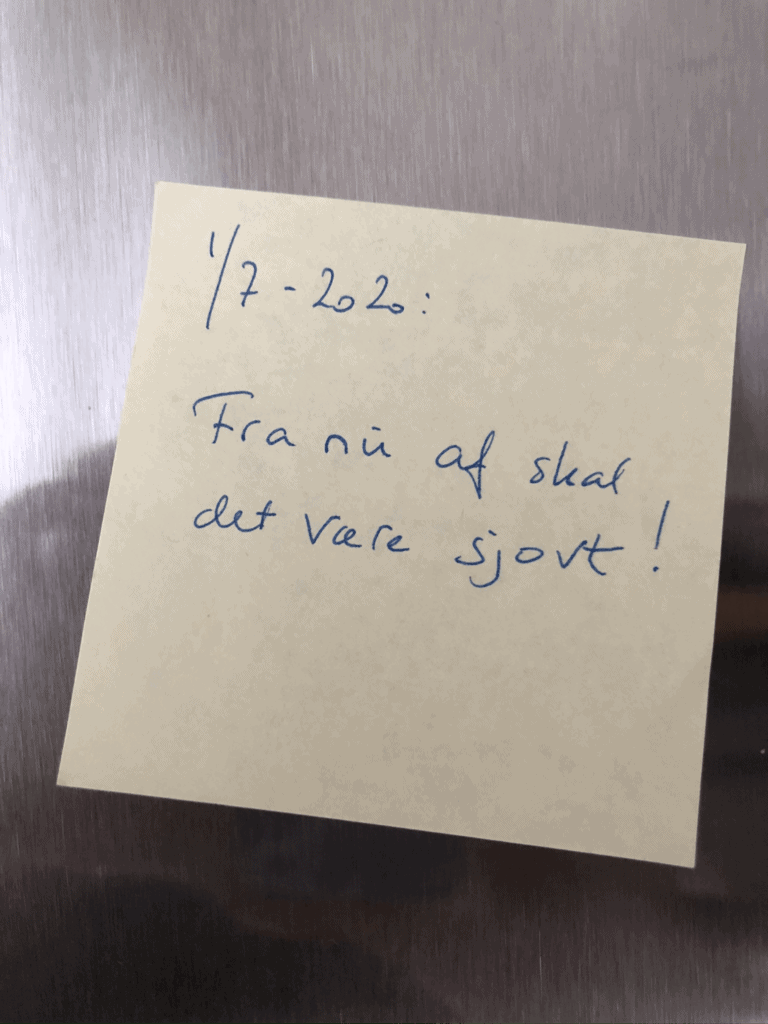 1/7 - 2020:
Fra nu af skal
det være sjovt!